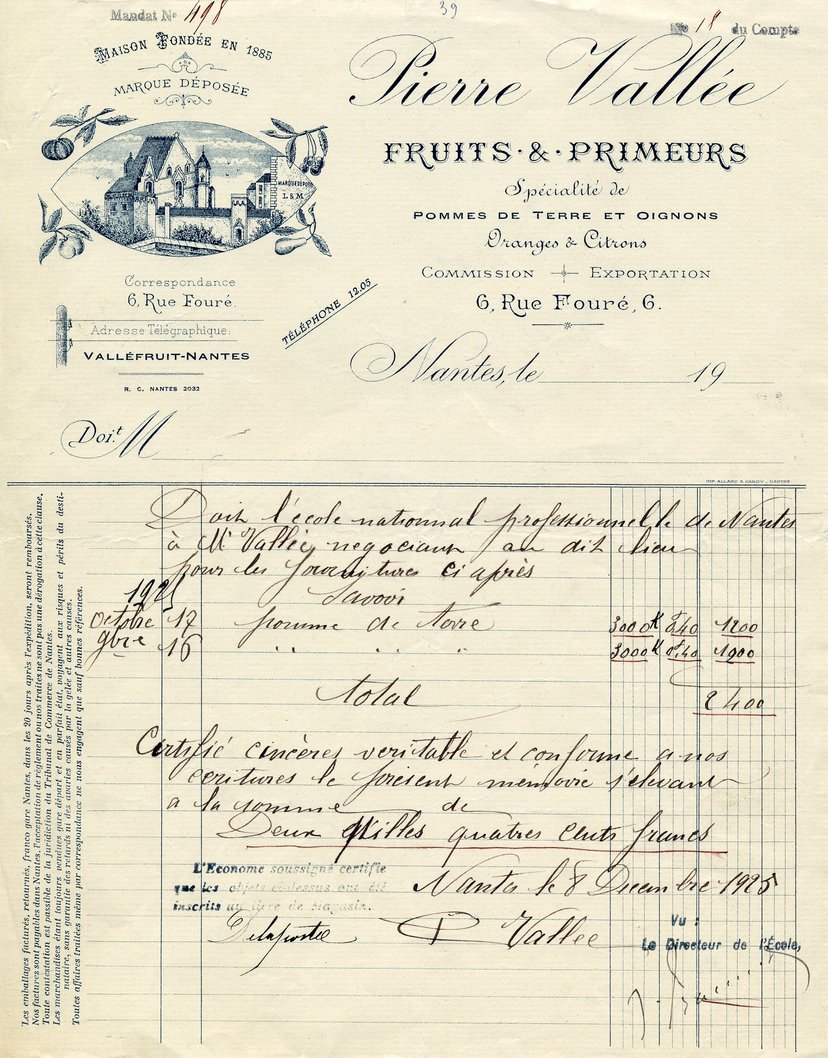 Mandat N° 498
39
N° 18 du Compte
MAISON FONDÉE EN 1885
MARQUE DÉPOSÉE
MARQUE DÉPOSÉE
L & M.
Pierre Vallée
FRUITS · & · PRIMEURS
Spécialité de
POMMES DE TERRE ET OIGNONS
Oranges & Citrons
COMMISSION EXPORTATION
6, Rue Fouré, 6.
Correspondance
6, Rue Fouré.
Adresse Télégraphique:
VALLÉFRUIT-NANTES
R. C. NANTES 2032
TÉLÉPHONE 12.05
Nantes, le 19
Doi.t M
Doit l'école nationnal professionnelle de Nantes
à Mr Vallée, negociant au dit lieu
pour les fournitures ci après
Savoir
1925
octobre 17 pomme de terre 3000 K 0f,40 1200
9bre 16 " " " " 3000 K 0f,40 1200
total 2400
Certifié cincères veritable et conforme a nos
ecritures le présent mémoire s'elevant
a la somme de
Deux Milles quatres cents francs
L'Econome soussigné certifie
que les objets ci-dessus ont été
inscrits au livre de Magasin.
Nantes le 8 Decembre 1925
Delaportee
P Vallée
Vu :
Le Directeur de l'École,
Les emballages facturés, retournés, franco gare Nantes, dans les 20 jours après l'expédition, seront remboursés.
Nos factures sont payables dans Nantes. l'acceptation de réglement ou nos traites ne sont pas une dérogation à cette clause,
Toute contestation est passible de la juridiction du Tribunal de Commerce de Nantes.
Les marchandises étant toujours vendues gare départ et en parfait état, voyagent aux risques et périls du desti-
nataire, sans garantie des retards ni des avaries causés par la gelée et autres causes.
Toutes affaires traitées même par correspondance ne nous engagent que sauf bonnes références.